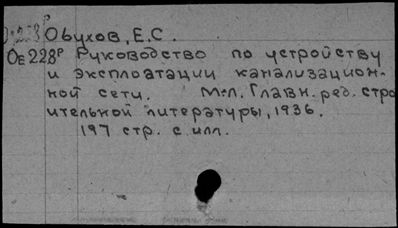 Обухов, Е.С.
Ов228Р Руководство по устройству
и эксплоатации канализацион-
ной сети. М-Л. Главн. ред. стро
ительной литературы, 1936.
197 стр. с илл.